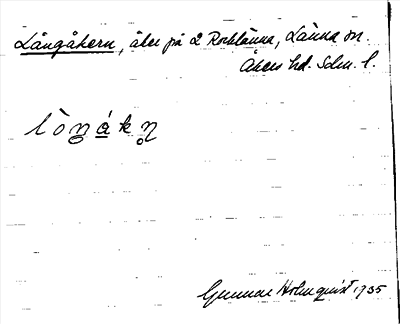 Långåkern, åker på 2 Rocklänna, Länna sn.
Åkers hd. Sdm. l.
lòŋákņ
Gunnar Holmquist 1935